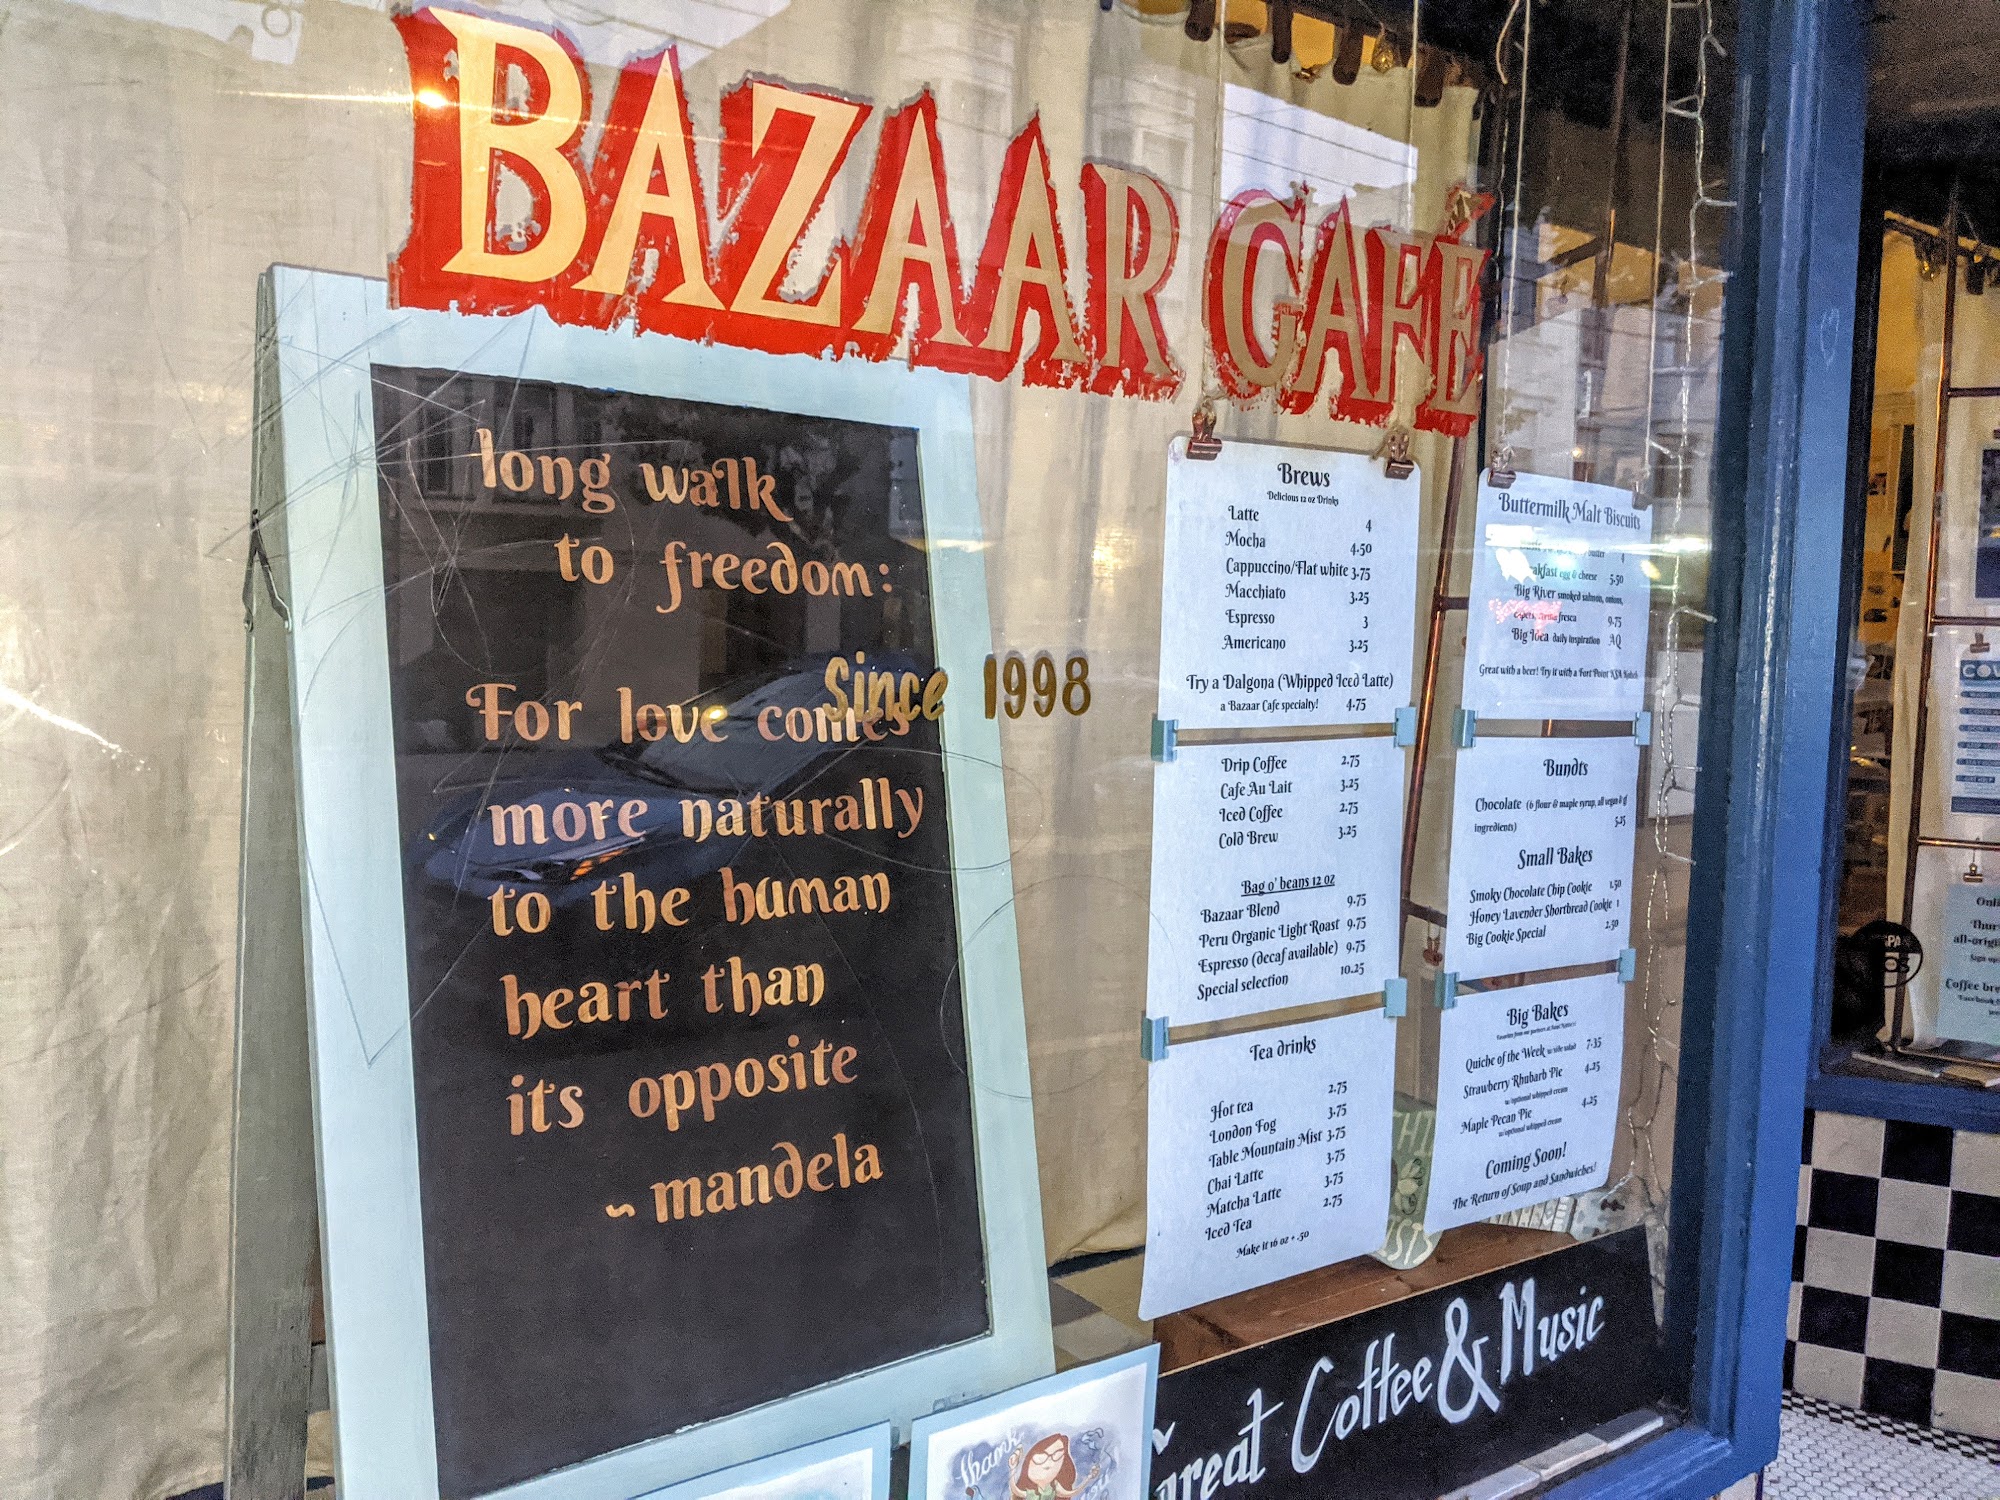 BAZAAR CAFÉ
Since 1998
long walk
to freedom:
For love comes
more naturally
to the human
heart than
its opposite
~ mandela
Brews
Delicious 12 oz Drinks
Latte 4
Mocha 4.50
Cappuccino/Flat white 3.75
Macchiato 3.25
Espresso 3
Americano 3.25
Try a Dalgona (Whipped Iced Latte)
a Bazaar Cafe specialty! 4.75
Drip Coffee 2.75
Cafe Au Lait 3.25
Iced Coffee 2.75
Cold Brew 3.25
Bag o' beans 12 oz
Bazaar Blend 9.75
Peru Organic Light Roast 9.75
Espresso (decaf available) 9.75
Special selection 10.25
Tea drinks
Hot tea 2.75
London Fog 3.75
Table Mountain Mist 3.75
Chai Latte 3.75
Matcha Latte 3.75
Iced Tea 2.75
Make it 16 oz + .50
Buttermilk Malt Biscuits
butter 4
egg & cheese 5.50
Big River smoked salmon, onions,
capers, crema fresca 9.75
Big Idea daily inspiration AQ
Great with a beer! Try it with a Fort Point KSA Kolsch
Bundts
Chocolate (6 flour & maple syrup, all vegan & gf
ingredients) 5.25
Small Bakes
Smoky Chocolate Chip Cookie 1.50
Honey Lavender Shortbread Cookie 1
Big Cookie Special 2.50
Big Bakes
Quiche of the Week w/side salad 7.35
Strawberry Rhubarb Pie 4.25
w/optional whipped cream
Maple Pecan Pie 4.25
w/optional whipped cream
Coming Soon!
The Return of Soup and Sandwiches!
Great Coffee & Music
thank